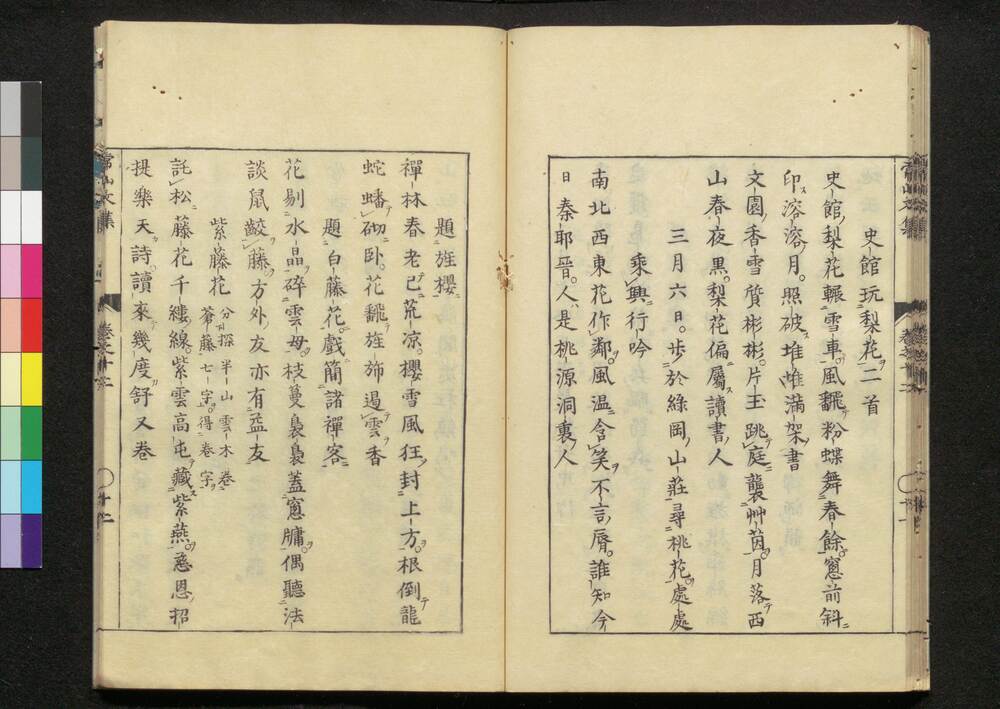 史館玩梨花二首
史館梨花輾雪車風飜粉蝶舞春餘窓前斜
印溶溶月照破堆堆滿架書
文園香雪質彬彬片玉跳庭襲艸茵月落西
山春夜黒梨花偏屬讀書人
三月六日步於綠岡山莊尋桃花處處
乘興行吟
南北西東花作鄰風溫含笑不言脣誰知今
日秦耶晋人是桃源洞裏人
題旌櫻
禪林春老已荒涼櫻雪風狂封上方根倒龍
蛇蟠砌臥花飜旌斾遏雲香
題白藤花戲簡諸禪客
花剔水晶碎雲母枝蔓裊裊蓋窓牖偶聽法
談鼠齩藤方外友亦有益友
紫藤花
分探半山雲木卷
蒼藤七字得卷字
託松藤花千縷線紫雲高屯藏紫燕慈恩招
提樂天詩讀來幾度舒又卷
常山文集
卷之十二
十二